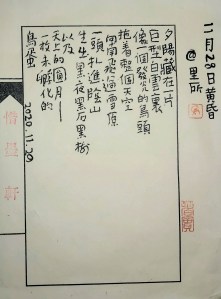 二月28日黄昏
@里所
夕陽藏在一片
巨型白雲裏
像一個發光的鳥頭
拖着整個天空
向南飛過雪原
一頭扎進陰山
生出黑夜黑石黑樹
以及
天上的圓月——
一枚未孵化的
鳥蛋
2020.11.29